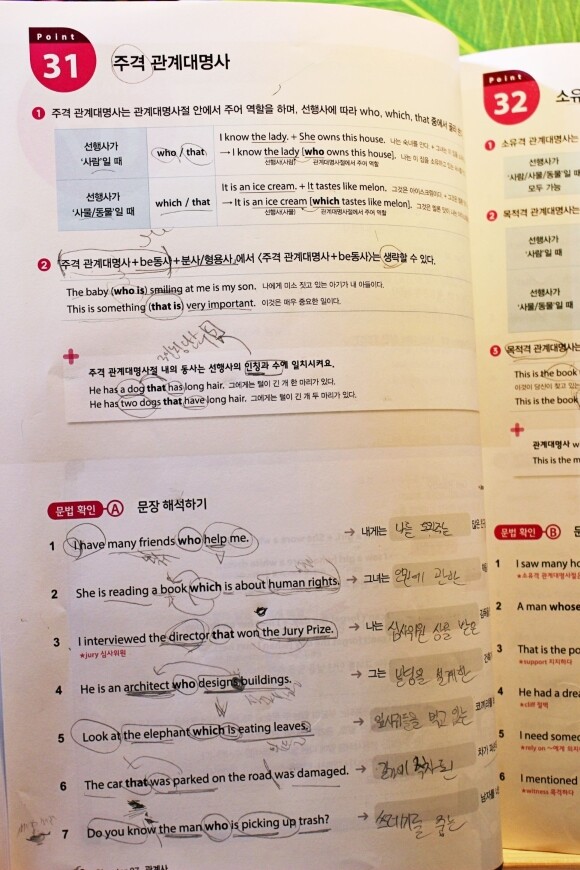 Point
31
주격 관계대명사
1 주격 관계대명사는 관계대명사절 안에서 주어 역할을 하며, 선행사에 따라 who, which, that 중에서 골라
선행사가
'사람'일 때
who / that
I know the lady. + She owns this house. 나는 숙녀를 안다. +
→ I know the lady [who owns this house]. 나는 이 집을 소유하고 있는
선행사(사람) 관계대명사절에서 주어 역할
선행사가
'사물/동물'일 때
which / that
It is an ice cream. + It tastes like melon. 그것은 아이스크림이다. +
→ It is an ice cream [which tastes like melon]. 그것은 멜론
선행사(사물) 관계대명사절에서 주어 역할
2 「주격 관계대명사+be동사+분사/형용사」에서 〈주격 관계대명사+be동사〉는 생략할 수 있다.
The baby (who is) smiling at me is my son. 나에게 미소 짓고 있는 아기가 내 아들이다.
This is something (that is) very important. 이것은 매우 중요한 일이다.
주격 관계대명사절 내의 동사는 선행사의 인칭과 수에 일치시켜요.
He has a dog that has long hair. 그에게는 털이 긴 개 한 마리가 있다.
He has two dogs that have long hair. 그에게는 털이 긴 개 두 마리가 있다.
문법 확인 A 문장 해석하기
1 I have many friends who help me. → 내게는 나를 도와주는
2 She is reading a book which is about human rights. → 그녀는 인권에 관한
3 I interviewed the director that won the Jury Prize. → 나는 심사위원 상을 받은
★jury 심사위원
4 He is an architect who designs buildings. → 그는 빌딩을 설계한
5 Look at the elephant which is eating leaves. → 잎사귀들을 먹고 있는
6 The car that was parked on the road was damaged. →
7 Do you know the man who is picking up trash? → 쓰레기를 줍는
관계사
Point
32
소유
1 소유격 관계대명사는
선행사가
'사람/사물/동물'일 때
모두 가능
2 목적격 관계대명사는
선행사가
'사람'일 때
선행사가
'사물/동물'일 때
3 목적격 관계대명사
This is the book
이것이 당신이 찾고 있는
This is the book
관계대명사
This is the m
문법 확인 B
1 I saw many ho
★소유격 관계대명사절은
2 A man whose
3 That is the po
★support 지지하다
4 He had a drea
★cliff 절벽
5 I need someo
★rely on ~에게 의지
6 I mentioned
★witness 목격하다